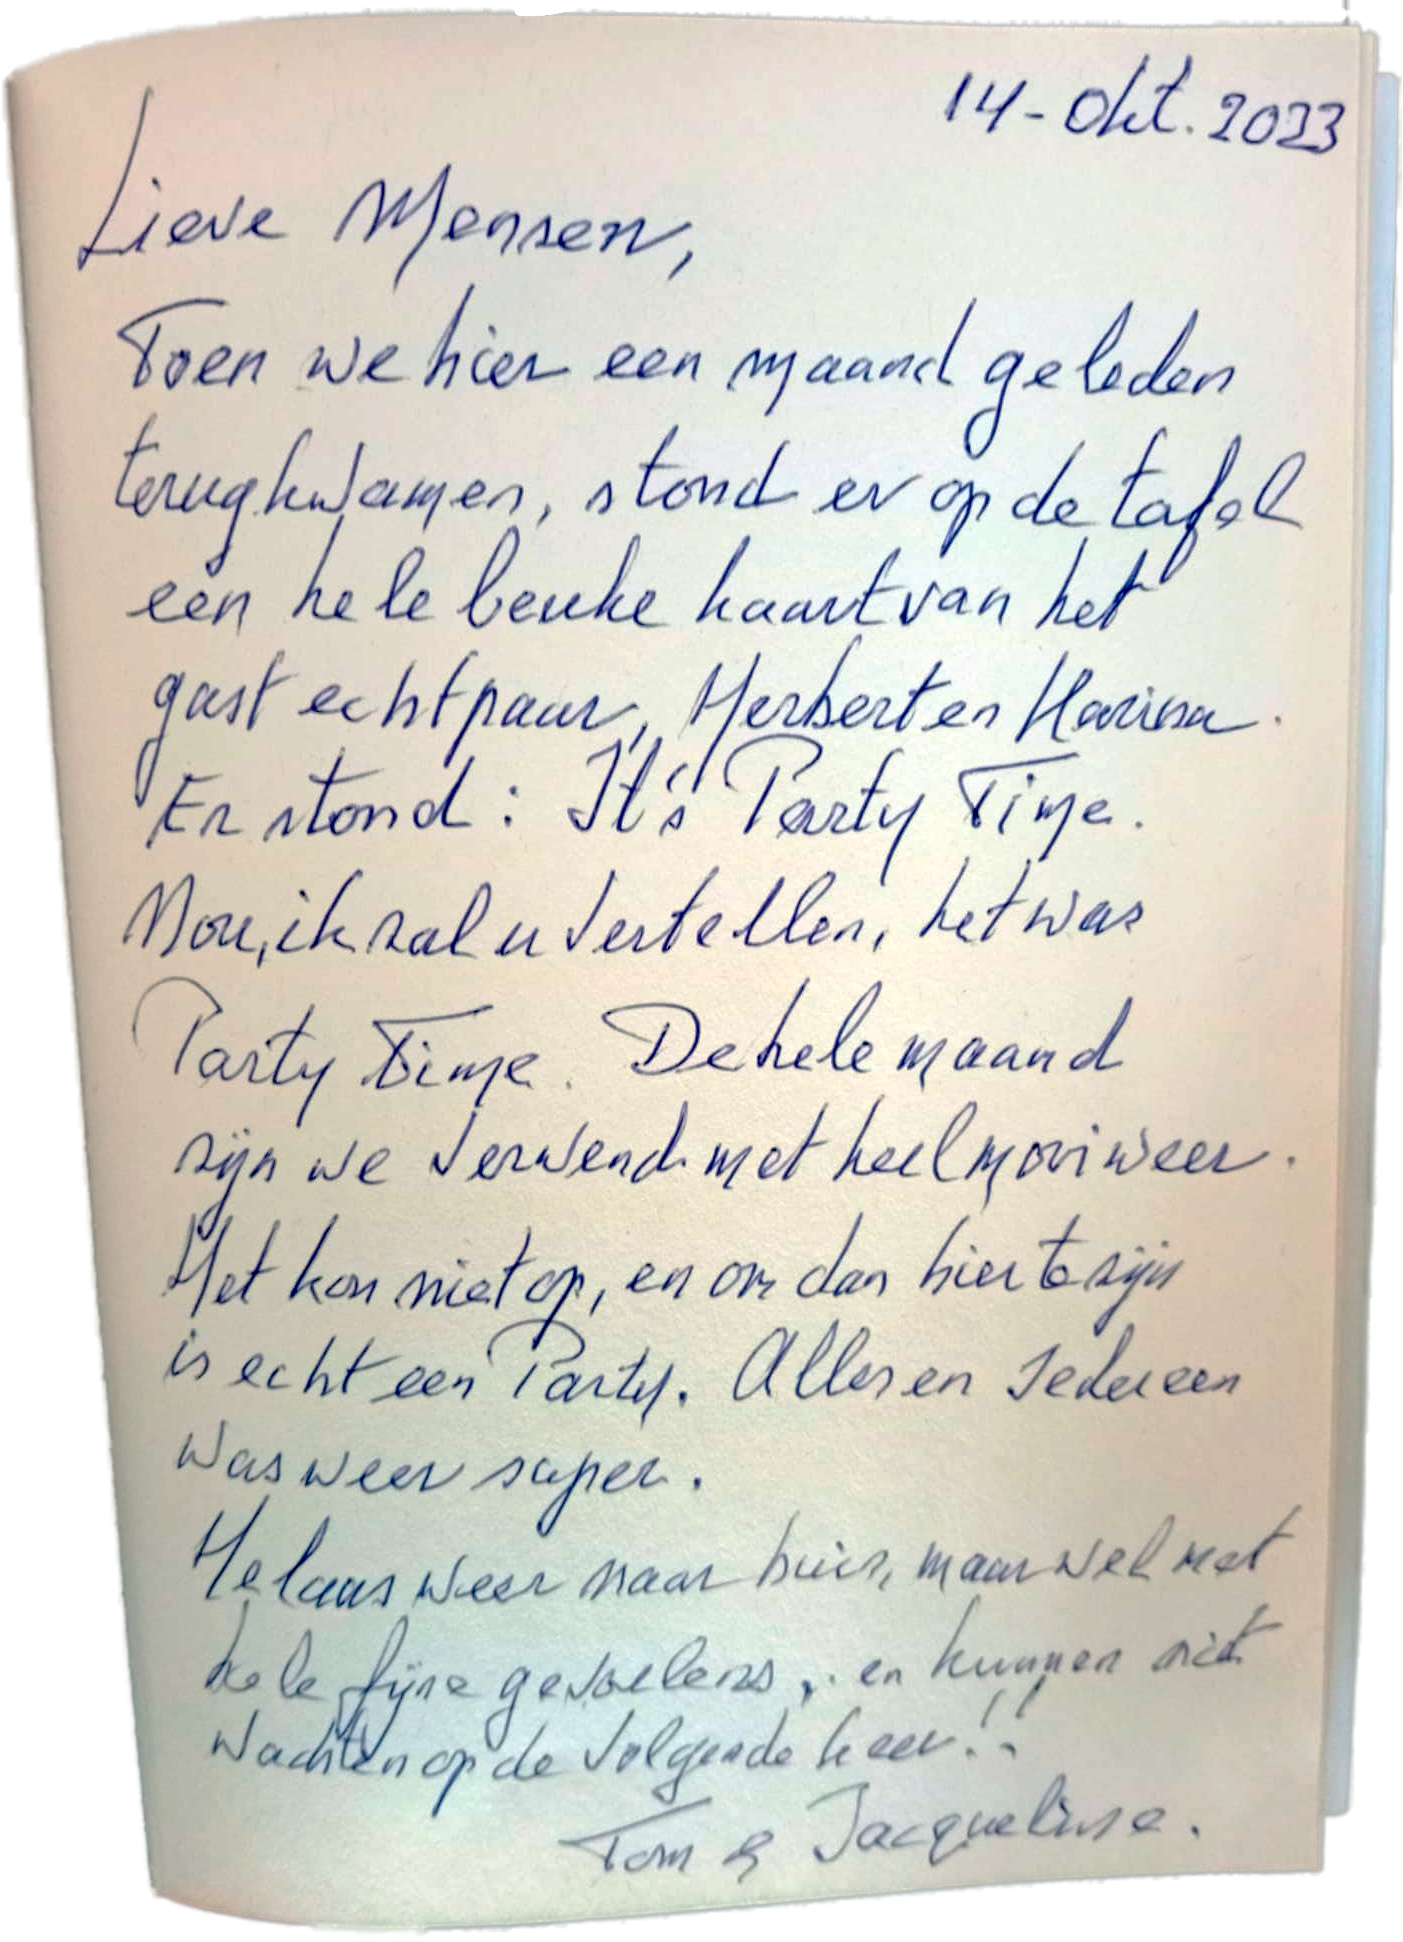 14-Okt. 2023
Lieve Mensen,
Toen we hier een maand geleden
terugkwamen, stond er op de tafel
een hele leuke kaart van het
gastechtpaar, Herbert en Marina.
Er stond: It's Party Time.
Nou, ik zal u vertellen, het was
Party Time. De hele maand
zijn we verwend met heel mooi weer.
Het kon niet op, en om dan hier te zijn
is echt een Party. Alles en Iedereen
was weer super.
Helaas weer naar huis, maar wel met
hele fijne gevoelens, en kunnen niet
wachten op de volgende keer!!
Tom & Jacqueline.